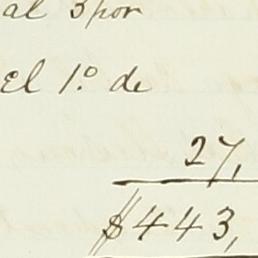 al 3 por
El 1º de
27,
$443,